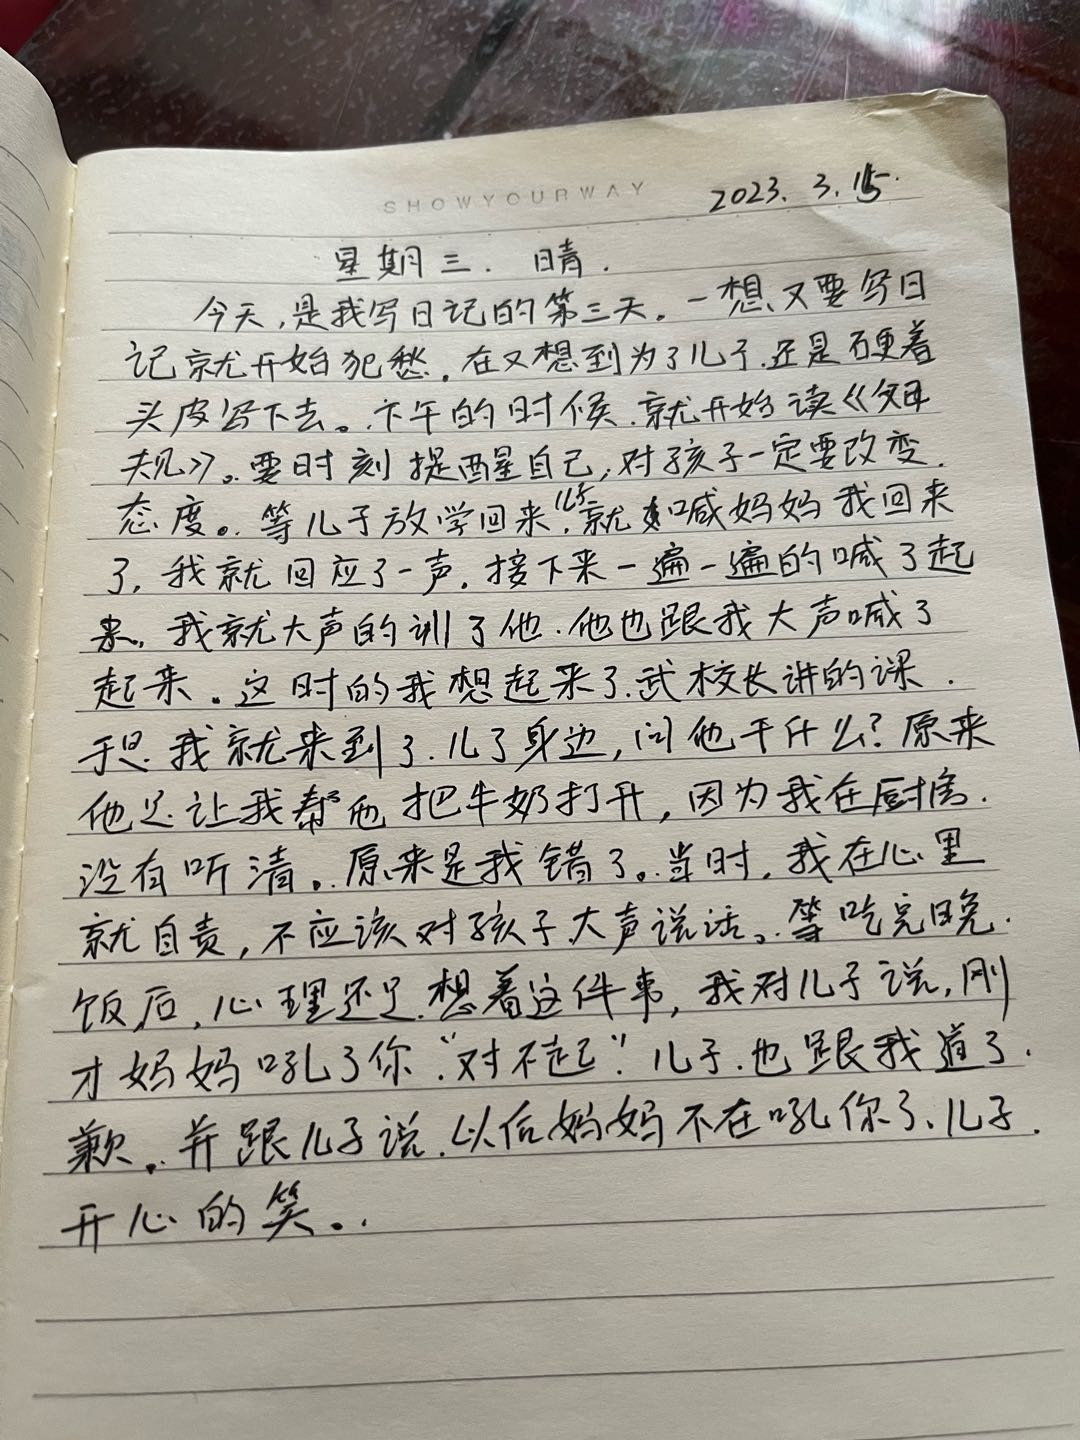 SHOWYOURWAY
2023. 3. 15.
星期三. 晴.
今天,是我写日记的第三天。一想又要写日
记就开始犯愁。在又想到为了儿子.还是硬着
头皮写下去。下午的时候.就开始读《父母
规》。要时刻提醒自己,对孩子一定要改变.
态度。等儿子放学回来.就喊妈妈我回来
了,我就回应了一声.接下来一遍一遍的喊了起
来。我就大声的训了他.他也跟我大声喊了
起来。这时的我想起来了.武校长讲的课.
于是我就来到了.儿了身边,问他干什么?原来
他是让我帮他把牛奶打开,因为我在厨房.
没有听清。原来是我错了。当时,我在心里
就自责,不应该对孩子大声说话。等吃完晚.
饭后,心理还是想着这件事,我对儿子说,刚
才妈妈吼了你“对不起”儿子.也跟我道了.
歉。并跟儿子说.以后妈妈不在吼你了、儿子.
开心的笑。.